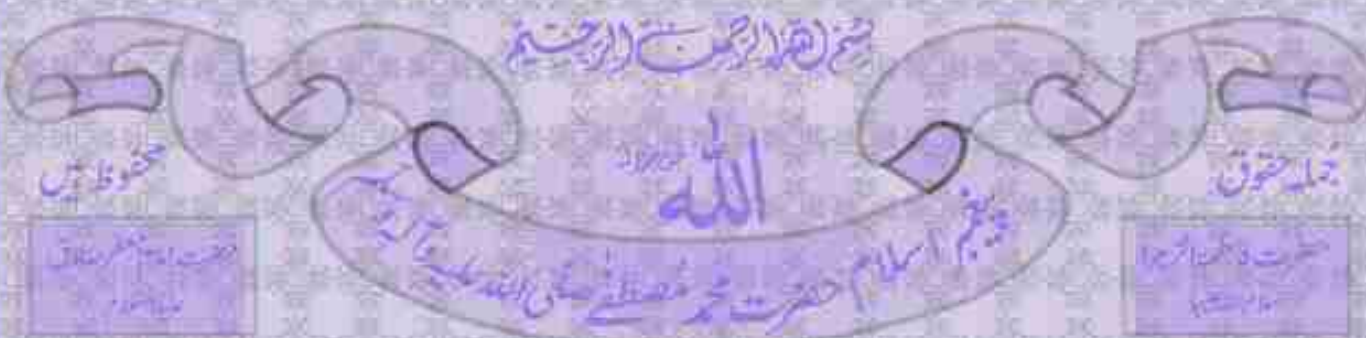 بسم اللہ الرحمن الرحیم
اللہ
جملہ حقوق
محفوظ ہیں
پیغمبر اسلام حضرت محمد مصطفےٰ صلی اللہ علیہ وآلہ وسلم
حضرت فاطمۃ الزہرا
سلام اللہ علیہا
حضرت امام جعفر صادق
علیہ السلام